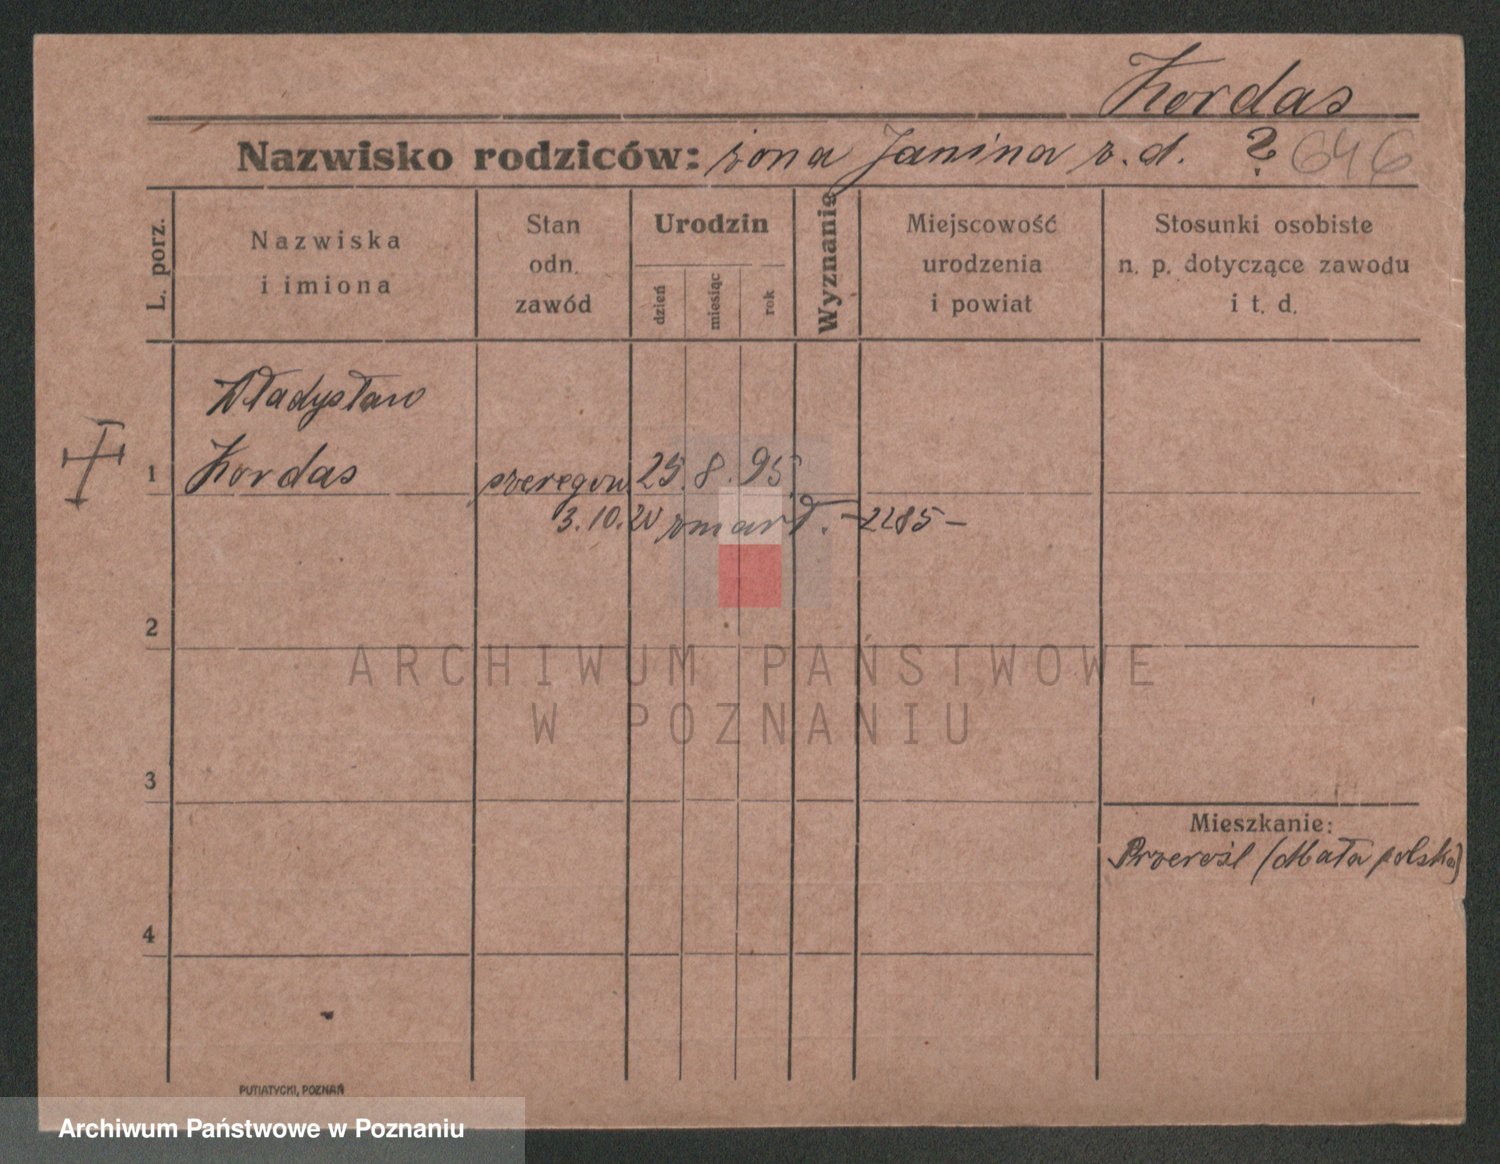 Kordas
Nazwisko rodziców: żona Janina z. d. ? 646
L. porz.
Nazwiska
i imiona
Stan
odn.
zawód
Urodzin
dzień
miesiąc
rok
Wyznanie
Miejscowość
urodzenia
i powiat
Stosunki osobiste
n. p. dotyczące zawodu
i t. d.
Władysław
1 Kordas szeregow 25. 8. 95.
3.10.20 zmarł. - 2285 -
2
ARCHIWUM PAŃSTWOWE
W POZNANIU
3
Mieszkanie:
Przerośl (Małapolska)
4
PUTIATYCKI, POZNAŃ
Archiwum Państwowe w Poznaniu